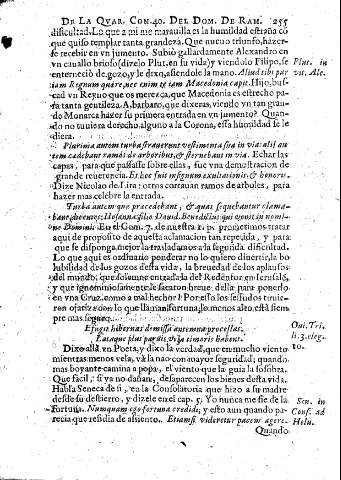 DE LA QVAR. COM. 40. DEL DOM. DE RAM. 255
dificultad. Lo que a mi me marauilla es la humildad estraña cō
que quiso templar tanta grandeza. Que nueuo triunfo, hazer
de recebir en vn jumento. Subiò gallardamente Alexandro en
vn cauallo briofo (dizelo Plut. en su vida) y viendolo Filipo, se
enterneciò de gozo, y le dixo, asiendole la mano. Aliud tibi par
iam Regnum quære, nec enim te iam Macedonia capit. Hijo, bus-
cad vn Reyno que os merezca, que Macedonia es estrecho pa-
ra tanta gentileza. A, barbaro, que dixeras, viendo vn tan gran-
de Monarca hazer su primera entrada en vn jumento? Quando
no tuuiera derecho alguno a la Corona, esta humildad se le
diera.
Plurima autem turba strauerunt vestimenta sua in via: alij au-
tem cædebant ramos de arboribus, & sternebant in via. Echar las
capas, para que passasse sobre ellas, fue vna demostracion de
grande reuerencia. Et hoc fuit insignum exultationis, & honoris.
Dize Nicolao de Lira: otros cortauan ramos de arboles, para
hazer mas celebre la entrada.
Turbæ autem quæ præcedebant, & quæ sequebantur clama-
bant, dicentes: Hosanna filio Dauid. Benedictus qui venit in nomi-
ne Domini. En el Com. 7. de nuestra prometimos tratar
aqui de proposito de aquesta aclamacion tan repetida, y para
que se disponga mejor la trasladamos a la segunda dificultad.
Lo que aqui es ordinario ponderar no lo quiero diuertir, la bo-
lubilidad de los gozos desta vida, la breuedad de los aplausos
del mundo: que solemne entrada la del Redentor en Ierusalē,
y que ignominiosamente le sacaron breue della para ponerlo
en vna Cruz, como a mal hechor! Por esso los sesudos tuuie-
ron ojeriza con lo que llaman fortuna, lo menos alto, està siem-
pre mas seguro.
Effugit hibernas demissa antemna procellas,
Lataque plus paruis vela timoris habent.
Dixo allà vn Poeta, y dixo la verdad, que en mucho viento
mientras menos vela, và la nao con mayor seguridad; quando
mas boyante camina a popa, el viento que la guia la sosobra.
Que facil, si ya no dañan, desaparecen los bienes desta vida.
Habla Seneca de si, en la Consolatoria que hizo a su madre
desde su destierro, y dizele en el cap. 5. Yo nunca me fie de la
Fortuna. Nunquam ego fortunæ credidi; y esto aun quando pa-
recia que residia de asiento. Etiamsi videretur pacem agere.
Quando
Plut. in
vit. Ale.
Oui. Tri.
li. 3. eleg.
10.
Sen. in
Cons. ad
Helu.